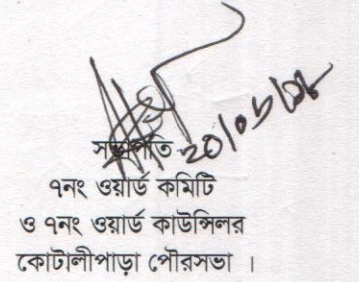 সভাপতি
৭নং ওয়ার্ড কমিটি
ও ৭নং ওয়ার্ড কাউন্সিলর
কোটালীপাড়া পৌরসভা ।